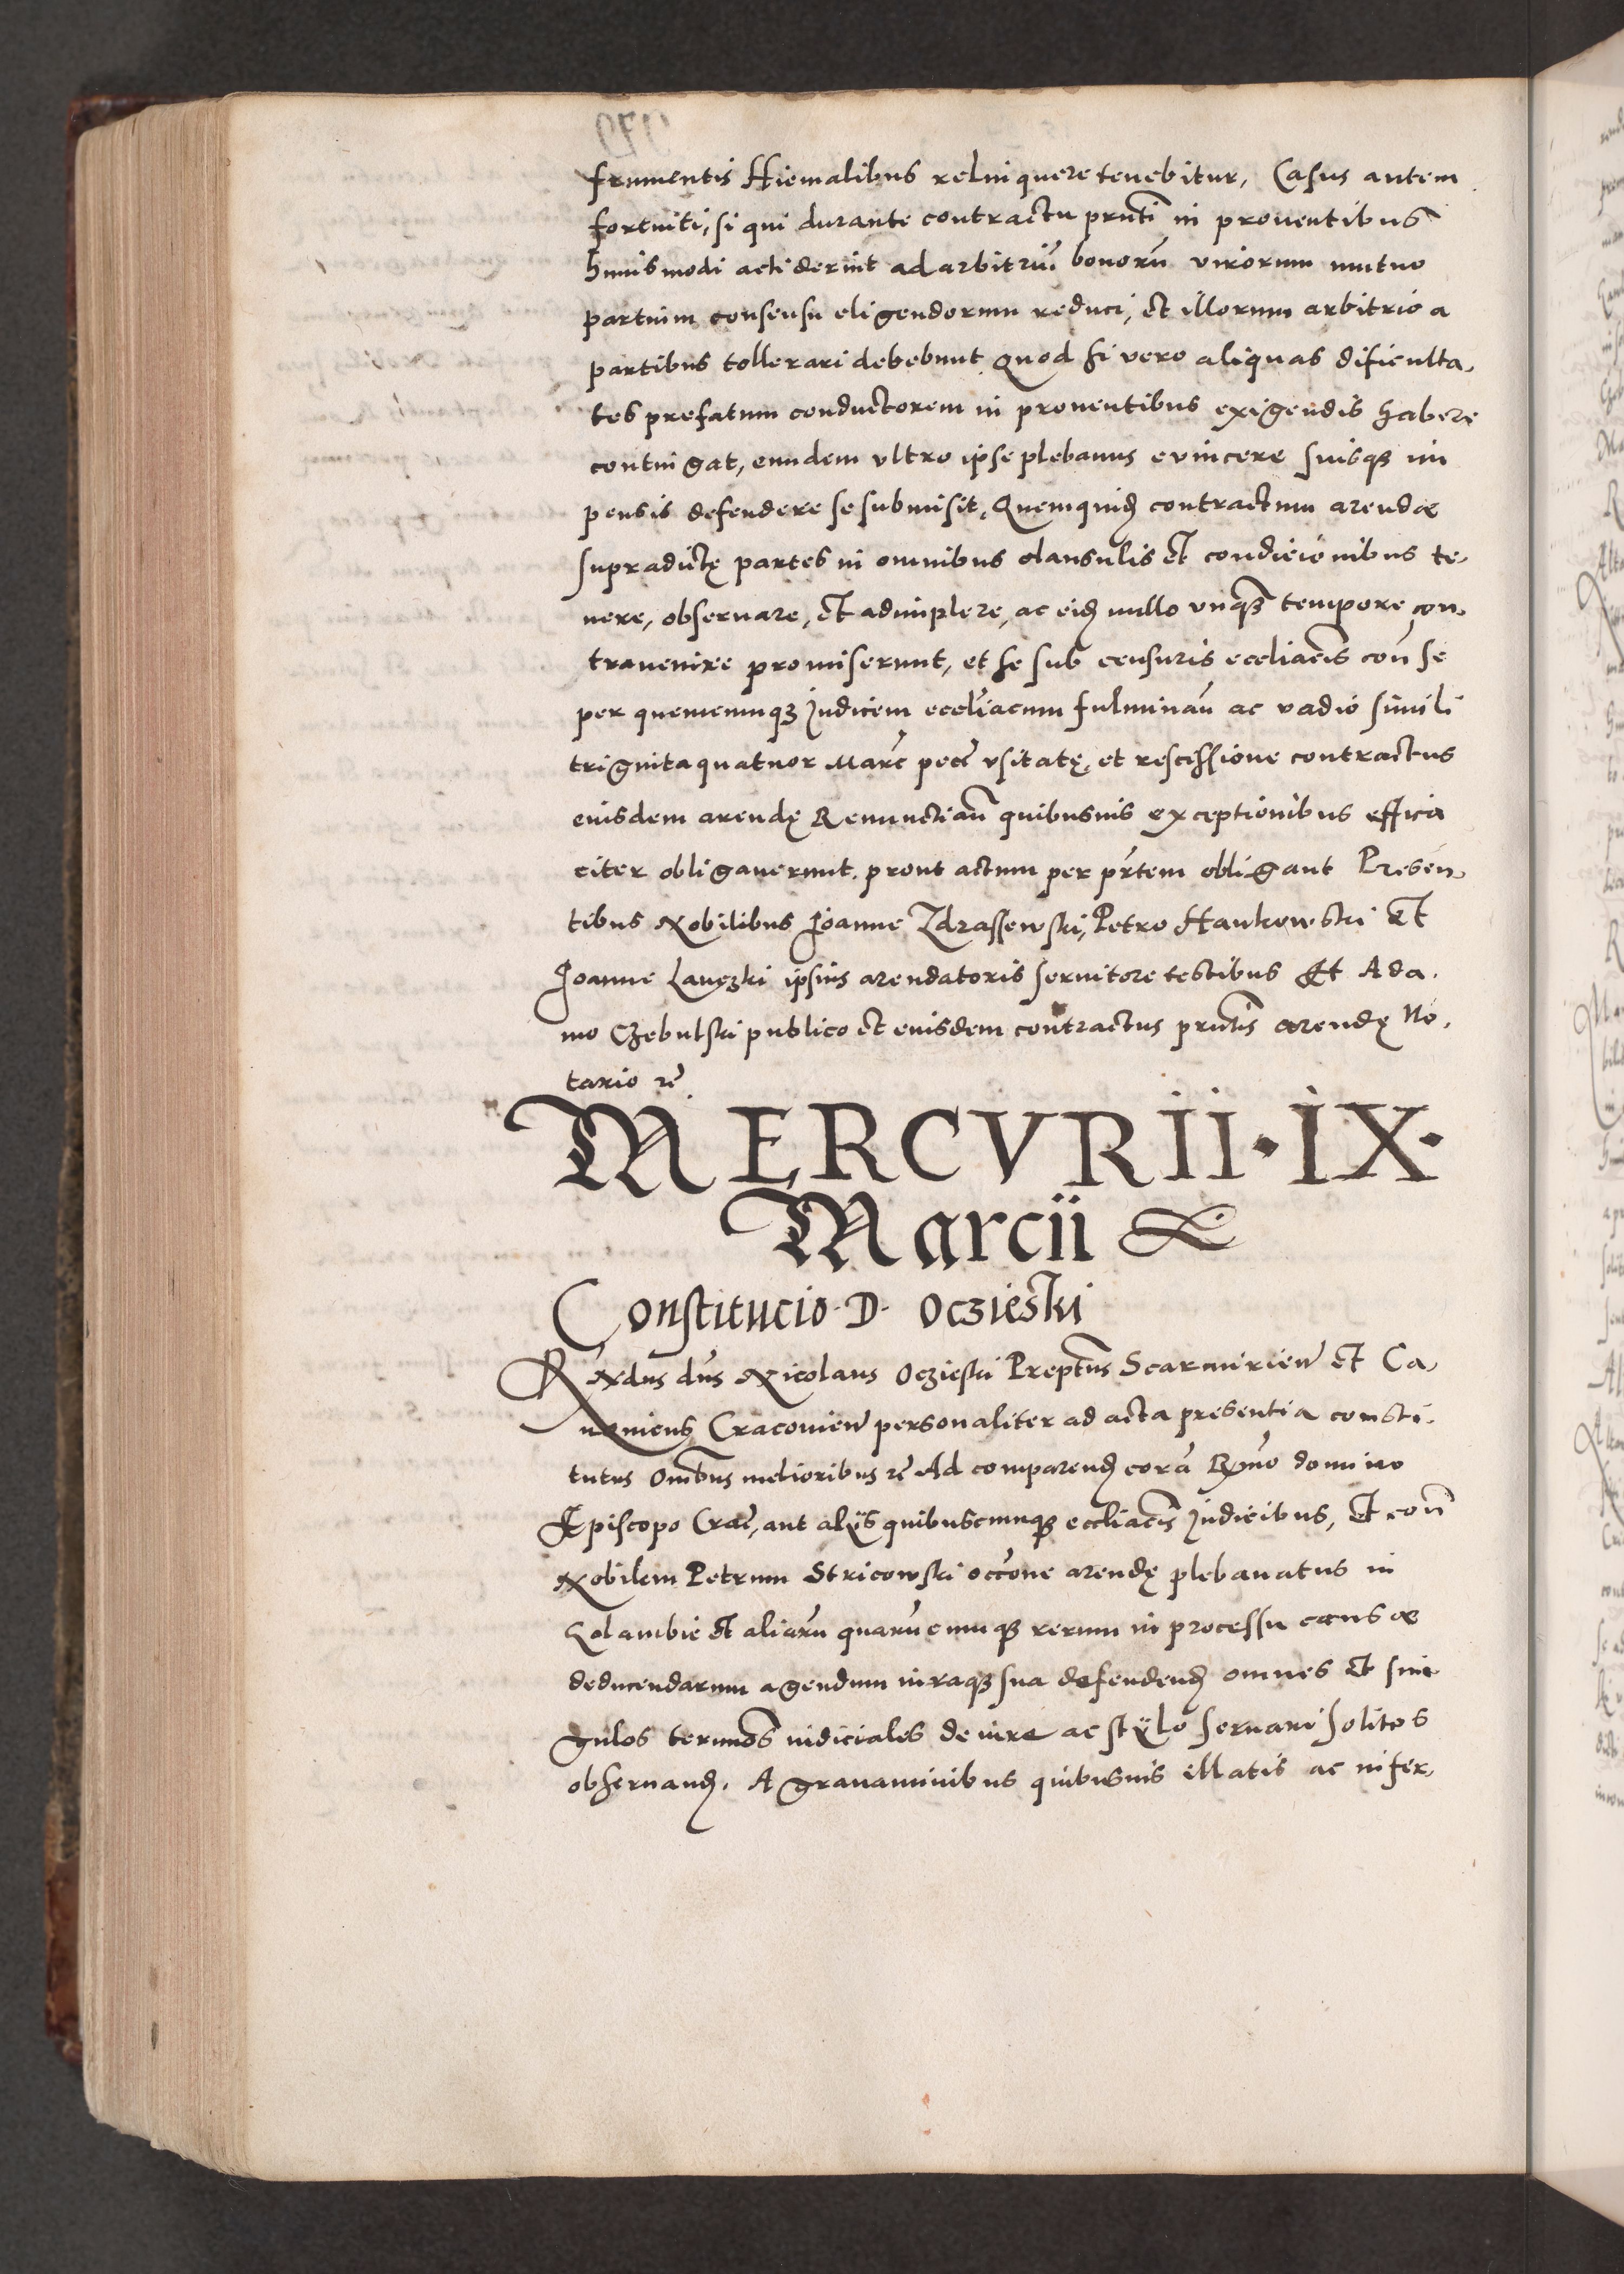 frumentis Hiemalibus relinquere tenebitur, Casus autem
fortuiti, si qui durante contractu pñti in prouentibus
huiusmodi acciderint ad arbitriũ bonorũ virorum mutuo
partium consensu eligendorum reduci, et illorum arbitrio a
partibus tollerari debebunt Quod si vero aliquas dificulta,
tes prefatum conductorem in prouentibus exigendis habere
contingat, eundem vltro ipse plebanus euincere suisqꝫ im
pensis defendere se submisit, Quemquid contractum arendæ
supradictę partes in omnibus clausulis et condicionibus te,
nere, obseruare, et adimplere, ac eid nullo vnqꝫ tempore con,
trauenire promiserunt, et se sub censuris eccliacis coñ se
per quemcumqꝫ Iudicem eccliacum fulminañ ac vadio simili
triginta quatuor Març pecẽ vsitatę, et rescissione contractus
eiusdem arendę Renunctiañ quibusuis exceptionibus effica
citer obligauerunt, prout actum per pñtem obligant Presen,
tibus Nobilibus Joanne Zdrassewski, Petro Hankowski Et
Joanne Lauczki ipsius arendatoris seruitore testibus Et Ada.
mo Czebulski publico et eiusdem contractus pñtis arendę No,
tario rẽ
MERCVRII · IX ·
Marcii
Constitucio · D · Oczieski
Rxdus dñs Nicolaus Oczieski Preptũs Scarmirieñ et Ca,
nonicus Cracouieñ personaliter ad acta presentia consti,
tutus Om̃bus melioribus rẽ Ad comparend corã Rx̃mo domino
Episcopo Crac̃, aut alijs quibuscumqꝫ eccliacis Iudicibus, Et coñ
Nobilem Petrum Stricowski occõne arendę plebanatus in
Golambie et aliarũ quarũcumqꝫ rerum in processu causæ
deducendarum agendum iuraqꝫ sua defendend omnes et sin
gulos termõs iudiciales de iure ac stÿlo seruari solitos
obseruand. A grauaminibus quibusuis illatis ac infer,